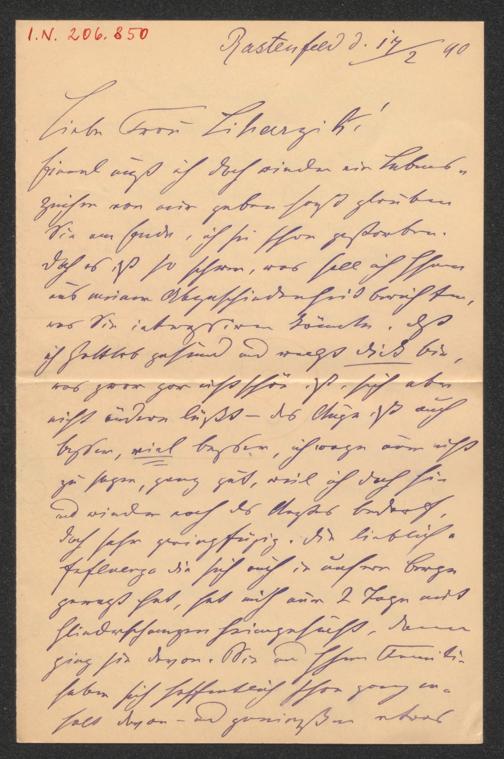 I.N. 206.850
Rastenfeld d. 17/2 90
Liebe Frau Liharzik!
Einmal muß ich doch wieder ein Lebens-
zeichen von mir geben sonst glauben
Sie am Ende, ich sei schon gestorben.
Doch es ist so schwer, was soll ich Ihnen
aus meiner Abgeschiedenheit berichten,
was Sie interessieren könnte. Daß
ich Gottlob gesund und dick bin,
was zwar gar nicht schön ist, sich aber
nicht ändern läßt – das Auge ist auch
besser, viel besser, ich wage nur nicht
zu sagen, ganz gut, weil ich doch hie
und wieder noch des Arztes bedarf,
doch sehr geringfügig. Die liebliche
Influenza die sich auch in unsere Berge
gewagt hat, hat mich nur 2 Tage mit
Gliederschmerzen heimgesucht, dann
ging sie davon. Sie und Ihre Familie
haben sich hoffentlich schon ganz er-
holt davon – und genießen etwas